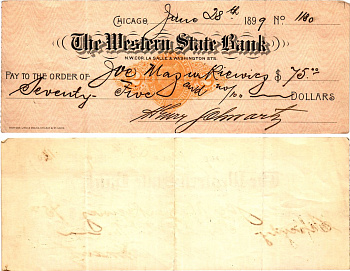 CHICAGO, June 28th 1899 No 1180
The Western State Bank
N.W. COR. LA SALLE & WASHINGTON STS.
PAY TO THE ORDER OF Joe Mazurkiewicz $ 75.00
Seventy-Five and no/00 DOLLARS
Henry Schwartz